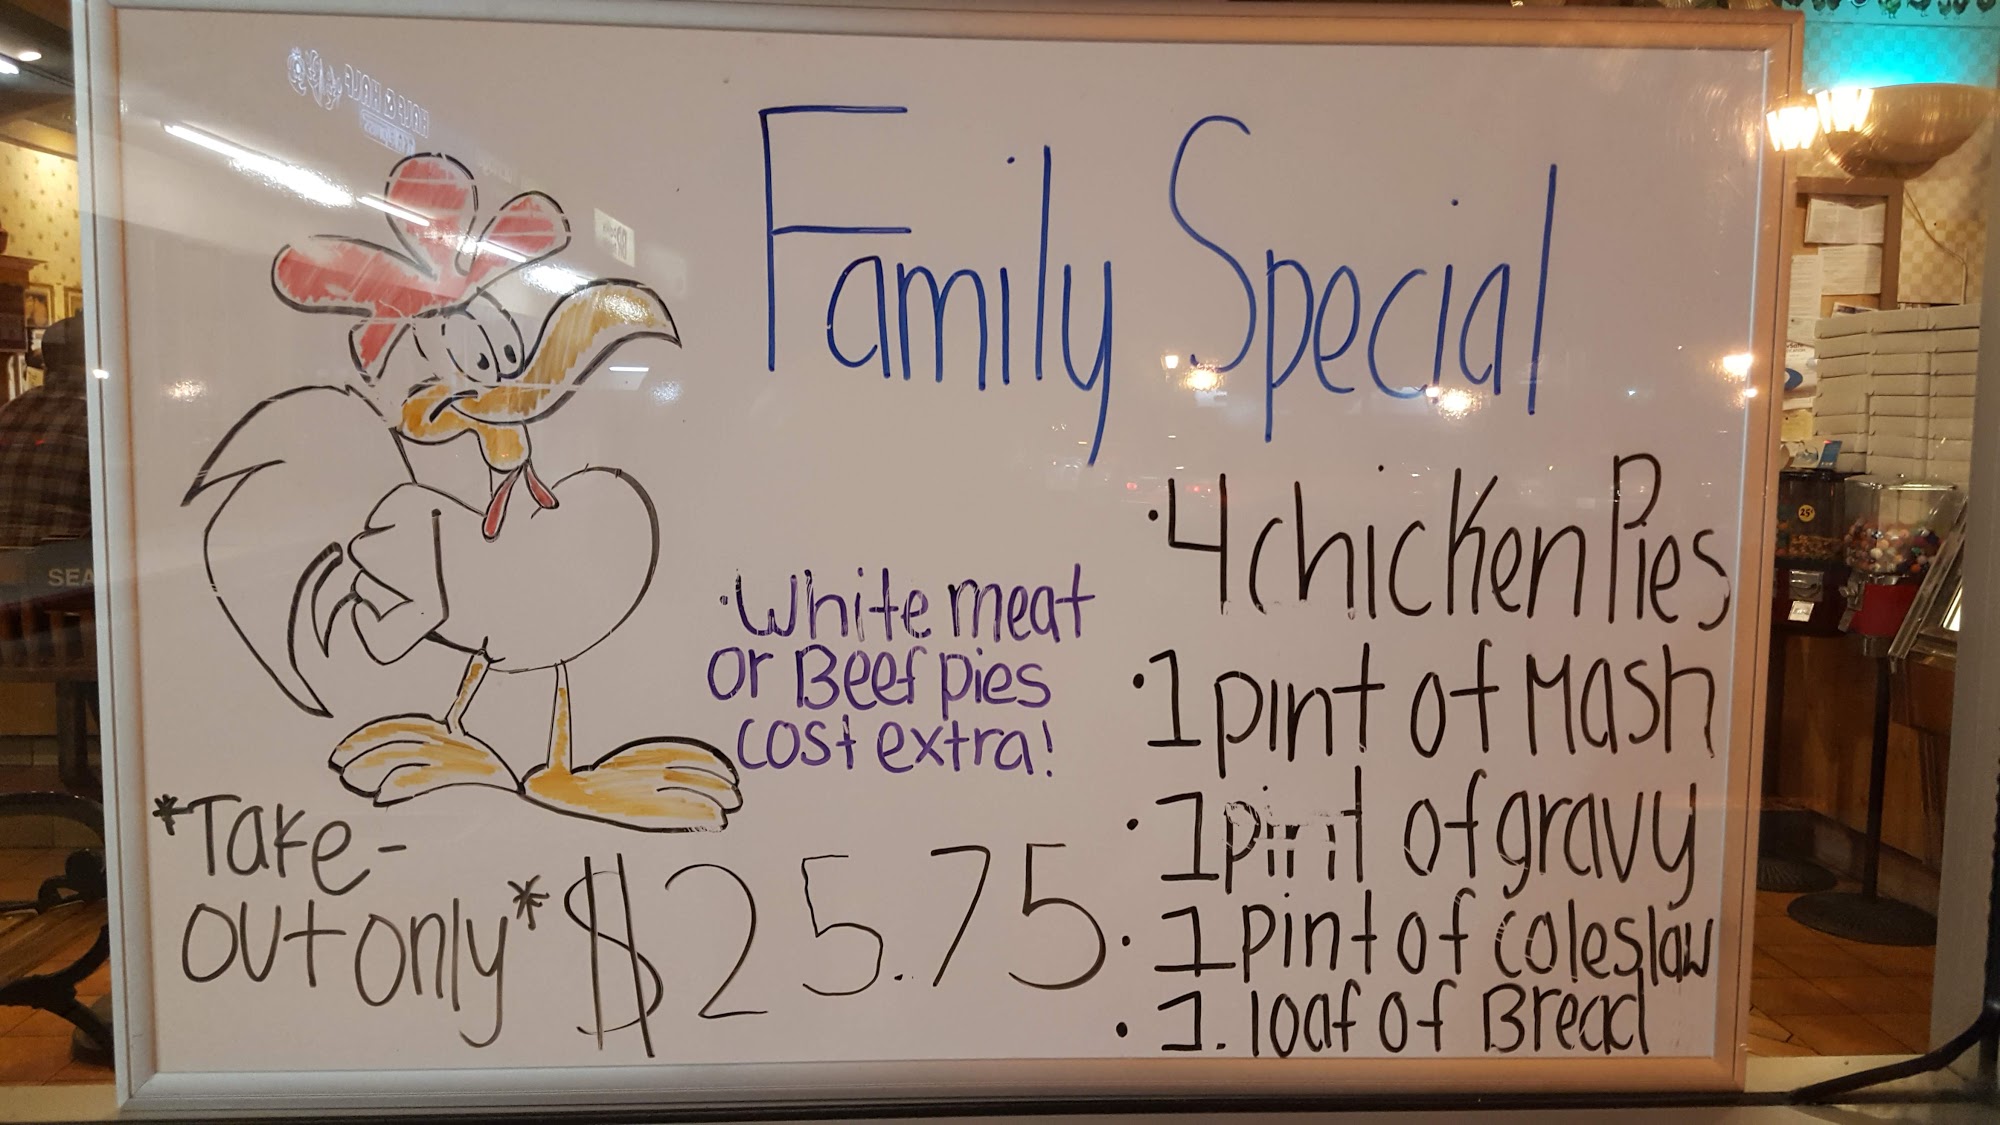 Family Special
·4 chicken Pies
·1 pint of Mash
·1 pint of gravy
·1 pint of coleslaw
·1. loaf of Bread
·White meat
or Beef pies
cost extra!
*Take-
out only*
$25.75
HALF & HALF
SEA
25¢